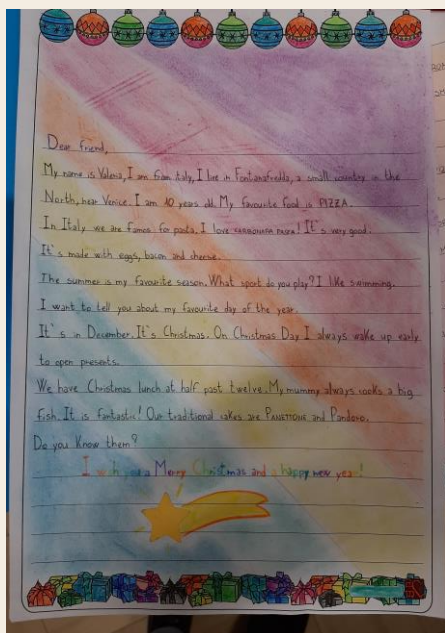 Dear friend,
My name is Valeria, I am from Italy, I live in Fontanafredda, a small country in the
North, near Venice. I am 10 years old. My favourite food is PIZZA.
In Italy we are famos for pasta. I love CARBONARA PASTA! It's very good.
It's made with eggs, bacon and cheese.
The summer is my favourite season. What sport do you play? I like swimming.
I want to tell you about my favourite day of the year.
It's in December. It's Christmas. On Christmas Day I always wake up early
to open presents.
We have Christmas lunch at half past twelve. My mummy always cooks a big
fish. It is fantastic! Our traditional cakes are PANETTONE and Pandoro.
Do you know them?
I wish you a Merry Christmas and a happy new year!